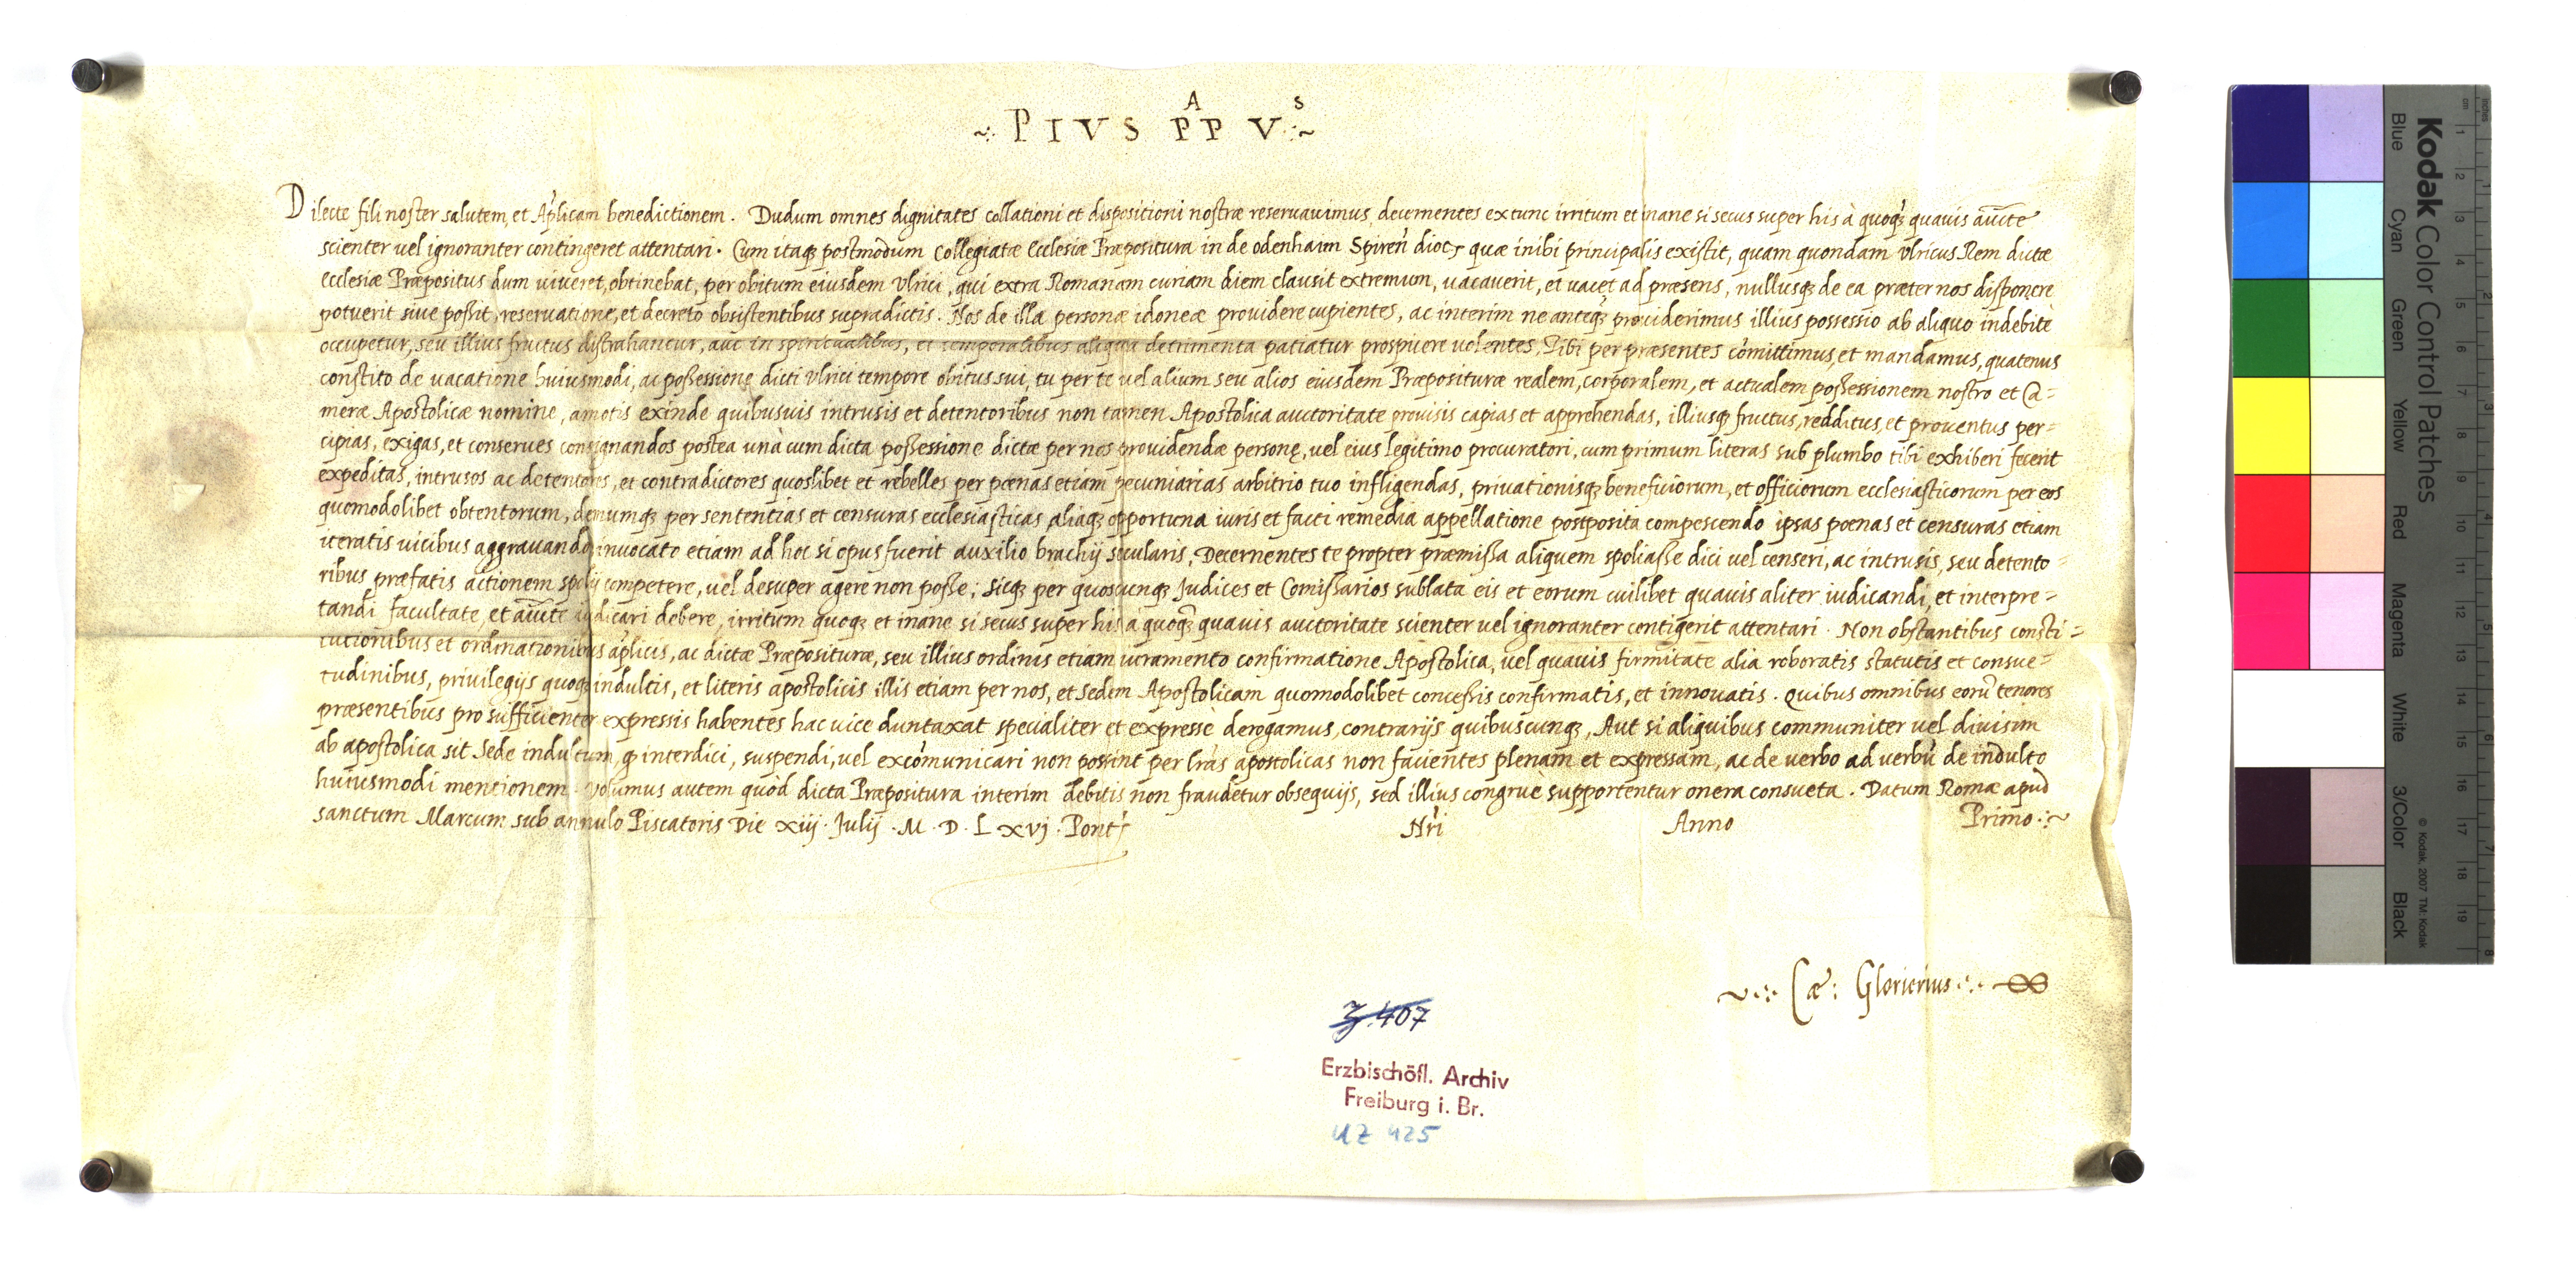 A S
~:· PIVS PP V ·:~
Dilecte fili noster salutem, et Ap̃licam benedictionem. Dudum omnes dignitates collationi et dispositioni nostræ reseruauimus decernentes ex tunc irritum et inane si secus super his à quoq̃ quauis auc̃te
scienter uel ignoranter contingeret attentari. Cum itaq; postmodum Collegiatæ Ecclesiæ Præpositura in de odenhaim Spireñ dioc; quæ inibi principalis existit, quam quondam Vlricus Rem dictæ
ecclesiæ Præpositus dum uiueret, obtinebat, per obitum eiusdem Vlrici, qui extra Romanam curiam diem clausit extremum, uacauerit, et uacet ad præsens, nullusq; de ea præter nos disponere
potuerit siue possit, reseruatione, et decreto obsistentibus supradictis. Nos de illa personæ idoneæ prouidere cupientes, ac interim ne anteq̃ prouiderimus illius possessio ab aliquo indebitè
occupetur, seu illius fructus distrahantur, aut in spiritualibus, et temporalibus aliqua detrimenta patiatur prospicere uolentes, Tibi per præsentes com̃ittimus, et mandamus, quatenus
constito de uacatione huiusmodi, ac possessione dicti Vlrici tempore obitus sui, tu per te uel alium seu alios eiusdem Præposituræ realem, corporalem, et actualem possessionem nostro et Ca=
meræ Apostolicæ nomine, amotis exinde quibusuis intrusis et detentoribus non tamen Apostolica auctoritate prouisis capias et apprehendas, illiusq; fructus, redditus, et prouentus per=
cipias, exigas, et conserues consignandos postea unà cum dicta possessione dictæ per nos prouidendæ personę, uel eius legitimo procuratori, cum primum literas sub plumbo tibi exhiberi fecerit
expeditas, intrusos ac detentores, et contradictores quoslibet et rebelles per pœnas etiam pecuniarias arbitrio tuo infligendas, priuationisq; beneficiorum, et officiorum ecclesiasticorum per eos
quomodolibet obtentorum, demumq; per sententias et censuras ecclesiasticas aliaq; opportuna iuris et facti remedia appellatione postposita compescendo ipsas poenas et censuras etiam
iteratis uicibus aggrauando, inuocato etiam ad hoc si opus fuerit auxilio brachij secularis, Decernentes te propter præmissa aliquem spoliasse dici uel censeri, ac intrusis, seu detento=
ribus præfatis actionem spolij competere, uel desuper agere non posse; Sicq; per quoscunq; Judices et Com̃issarios sublata eis et eorum cuilibet quauis aliter iudicandi, et interpre=
tandi facultate, et auc̃te iudicari debere, irritum quoq; et inane si secus super his à quoq̃ quauis auctoritate scienter uel ignoranter contigerit attentari. Non obstantibus consti=
tutionibus et ordinationibus ap̃licis, ac dictæ Præposituræ, seu illius ordinis etiam iuramento confirmatione Apostolica, uel quauis firmitate alia roboratis statutis et consue=
tudinibus, priuilegijs quoq; indultis, et literis apostolicis illis etiam per nos, et Sedem Apostolicam quomodolibet concessis confirmatis, et innouatis. Quibus omnibus eorũ tenores
præsentibus pro sufficienter expressis habentes hac uice duntaxat specialiter et expressè derogamus, contrarijs quibuscunq;, Aut si aliquibus communiter uel diuisim
ab apostolica sit Sede indultum, q̃ interdici, suspendi, uel excom̃unicari non possint per l̃ras apostolicas non facientes plenam et expressam, ac de uerbo ad uerbũ de indulto
huiusmodi mentionem. Volumus autem quòd dicta Præpositura interim debitis non fraudetur obsequijs, sed illius congruè supportentur onera consueta. Datum Romæ apud
sanctum Marcum sub annulo Piscatoris Die xiij. Julij. M. D. L xvj. Pont; Ñri Anno Primo ·:~
~·:· Cæ: Glorierius ·:·
3.407
Erzbischöfl. Archiv
Freiburg i. Br.
UZ 425
Kodak Color Control Patches
Blue Cyan Green Yellow Red Magenta White 3/Color Black
© Kodak, 2007 TM: Kodak
cm 1 2 3 4 5 6 7 8 9 10 11 12 13 14 15 16 17 18 19
inches 1 2 3 4 5 6 7 8